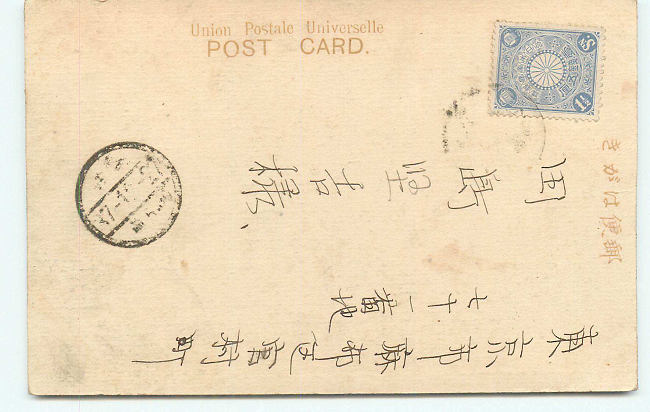 Union Postale Universelle
POST CARD.
きがは便郵
東京市麻布区宮村町
七十一番地
田島堅吉様